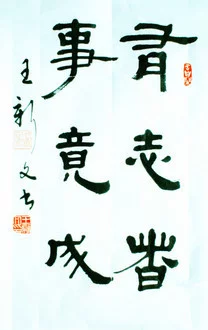 有志者
事竟成
王新文书